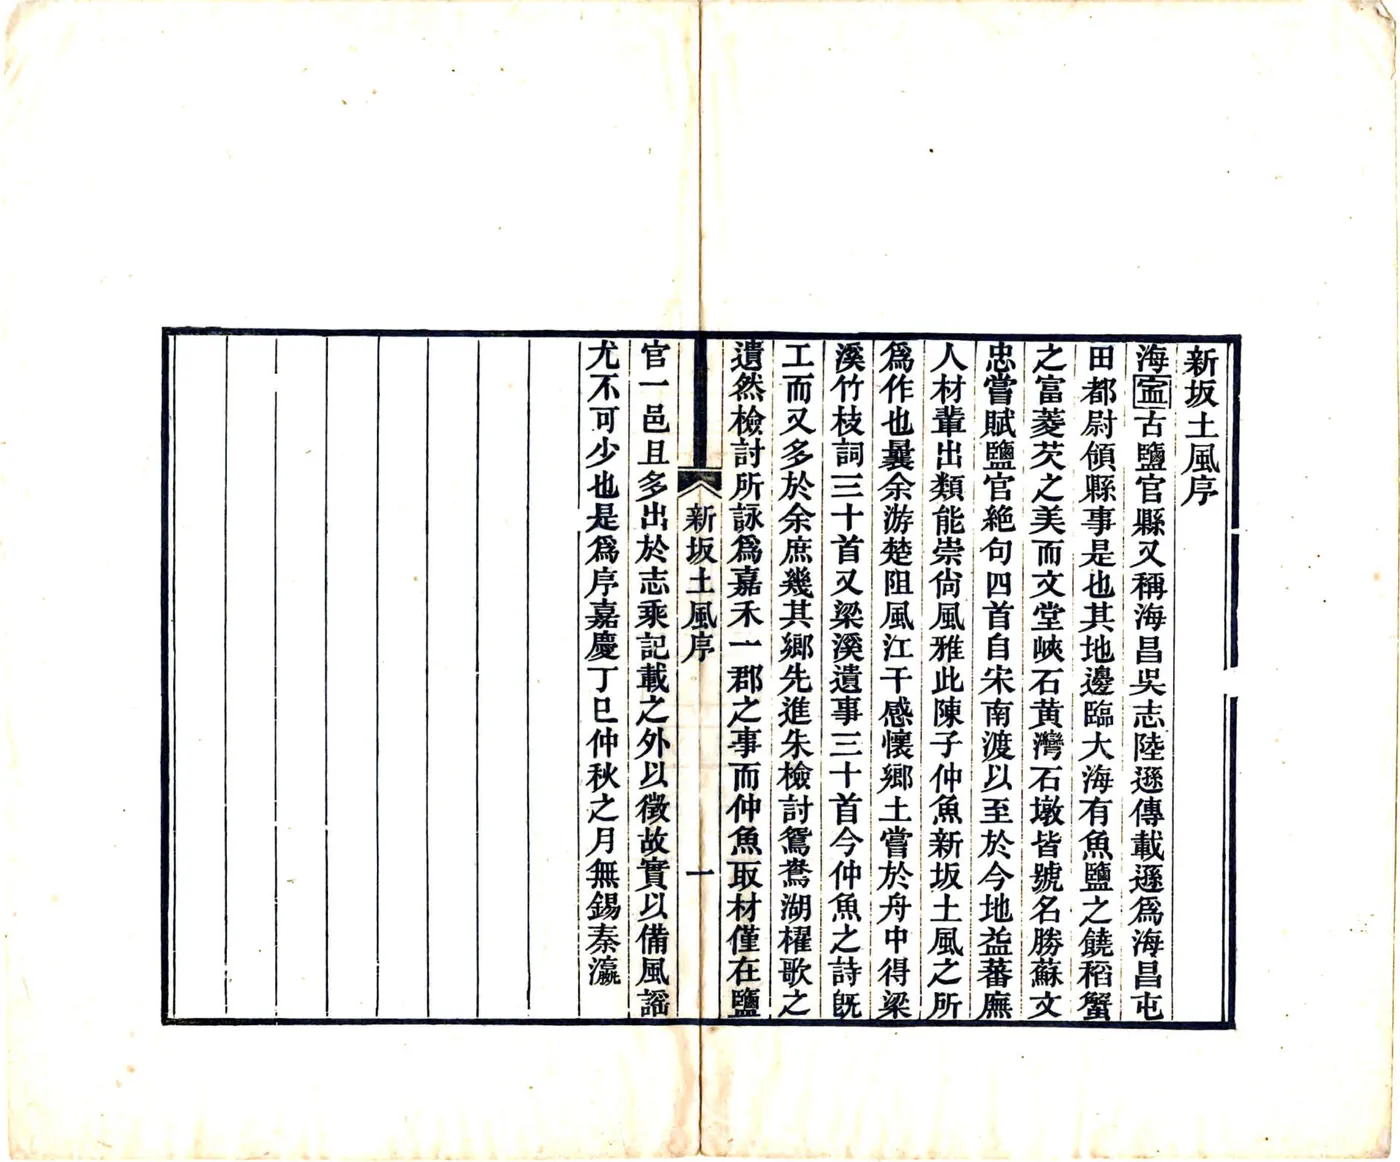 新坂土風序
海寍古鹽官縣又稱海昌吳志陸遜傳載遜爲海昌屯
田都尉領縣事是也其地邊臨大海有魚鹽之饒稻蟹
之富菱芡之美而文堂峽石黃灣石墩皆號名勝蘇文
忠嘗賦鹽官絶句四首自宋南渡以至於今地益蕃廡
人材輩出類能崇尙風雅此陳子仲魚新坂土風之所
爲作也曩余游楚阻風江干感懷鄉土嘗於舟中得梁
溪竹枝詞三十首又梁溪遺事三十首今仲魚之詩旣
工而又多於余庶幾其鄉先進朱檢討鴛鴦湖櫂歌之
遺然檢討所詠爲嘉禾一郡之事而仲魚取材僅在鹽
新坂土風序
一
官一邑且多出於志乘記載之外以徵故實以備風謠
尤不可少也是爲序嘉慶丁巳仲秋之月無錫秦瀛